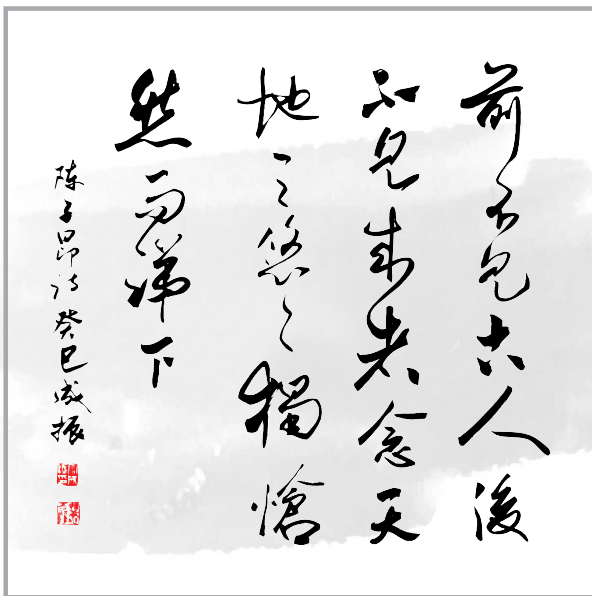 前不見古人後
不見來者念天
地之悠々獨愴
然而涕下
陈子昂诗癸巳成振